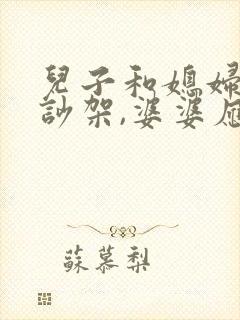 兒子和媳婦
訬架,婆婆應
蘇慕梨